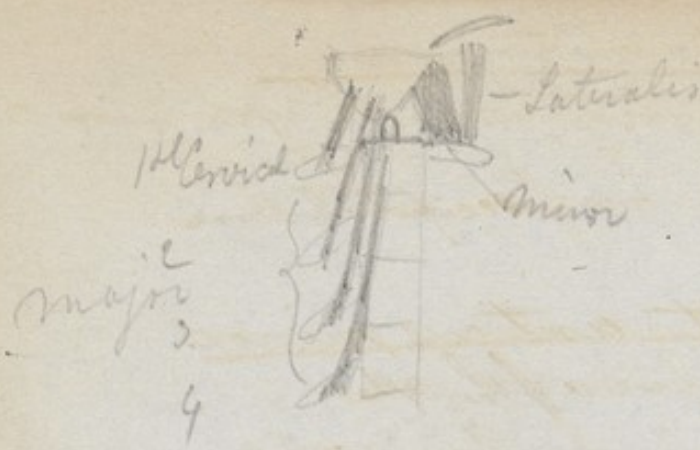 Lateralis
1st Cervical
minor
2
major
3
4